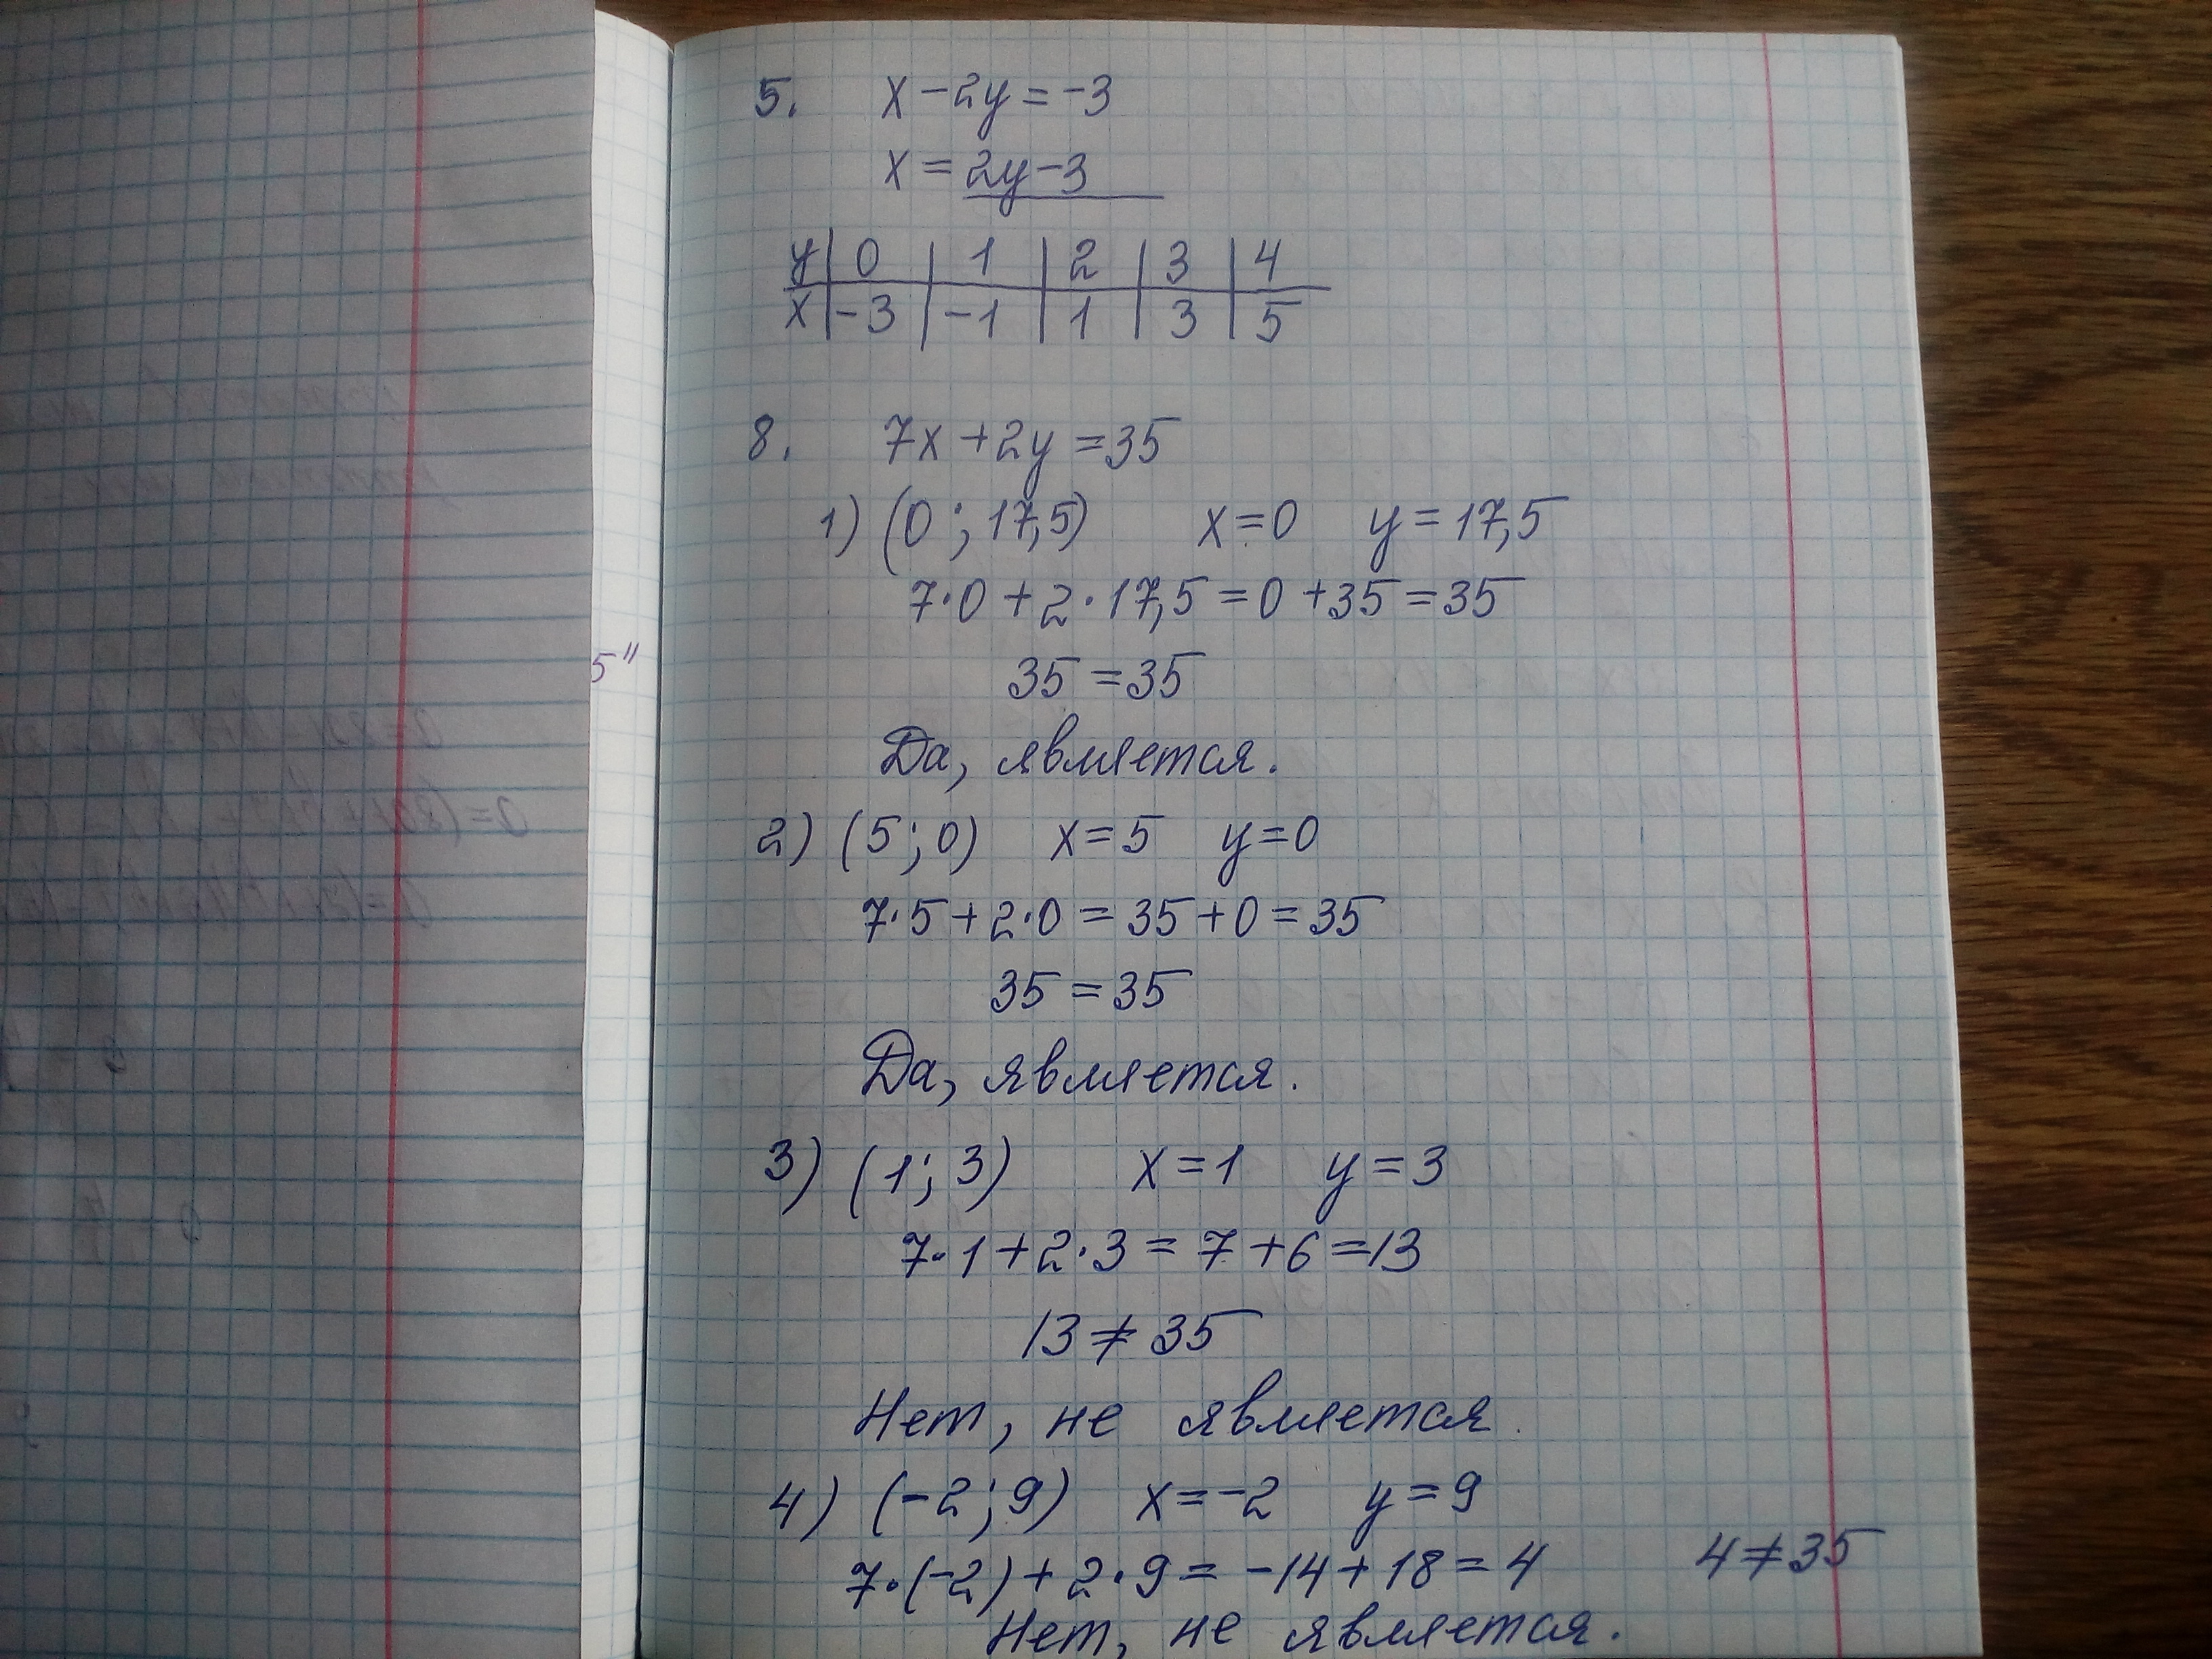 5. x-2y=-3
x=2y-3
y 0 1 2 3 4
x -3 -1 1 3 5
8. 7x+2y=35
1) (0;17,5) x=0 y=17,5
7·0+2·17,5=0+35=35
35=35
Да, является.
2) (5;0) x=5 y=0
7·5+2·0=35+0=35
35=35
Да, является.
3) (1;3) x=1 y=3
7·1+2·3=7+6=13
13≠35
Нет, не является.
4) (-2;9) x=-2 y=9
7·(-2)+2·9=-14+18=4 4≠35
Нет, не является.
5"